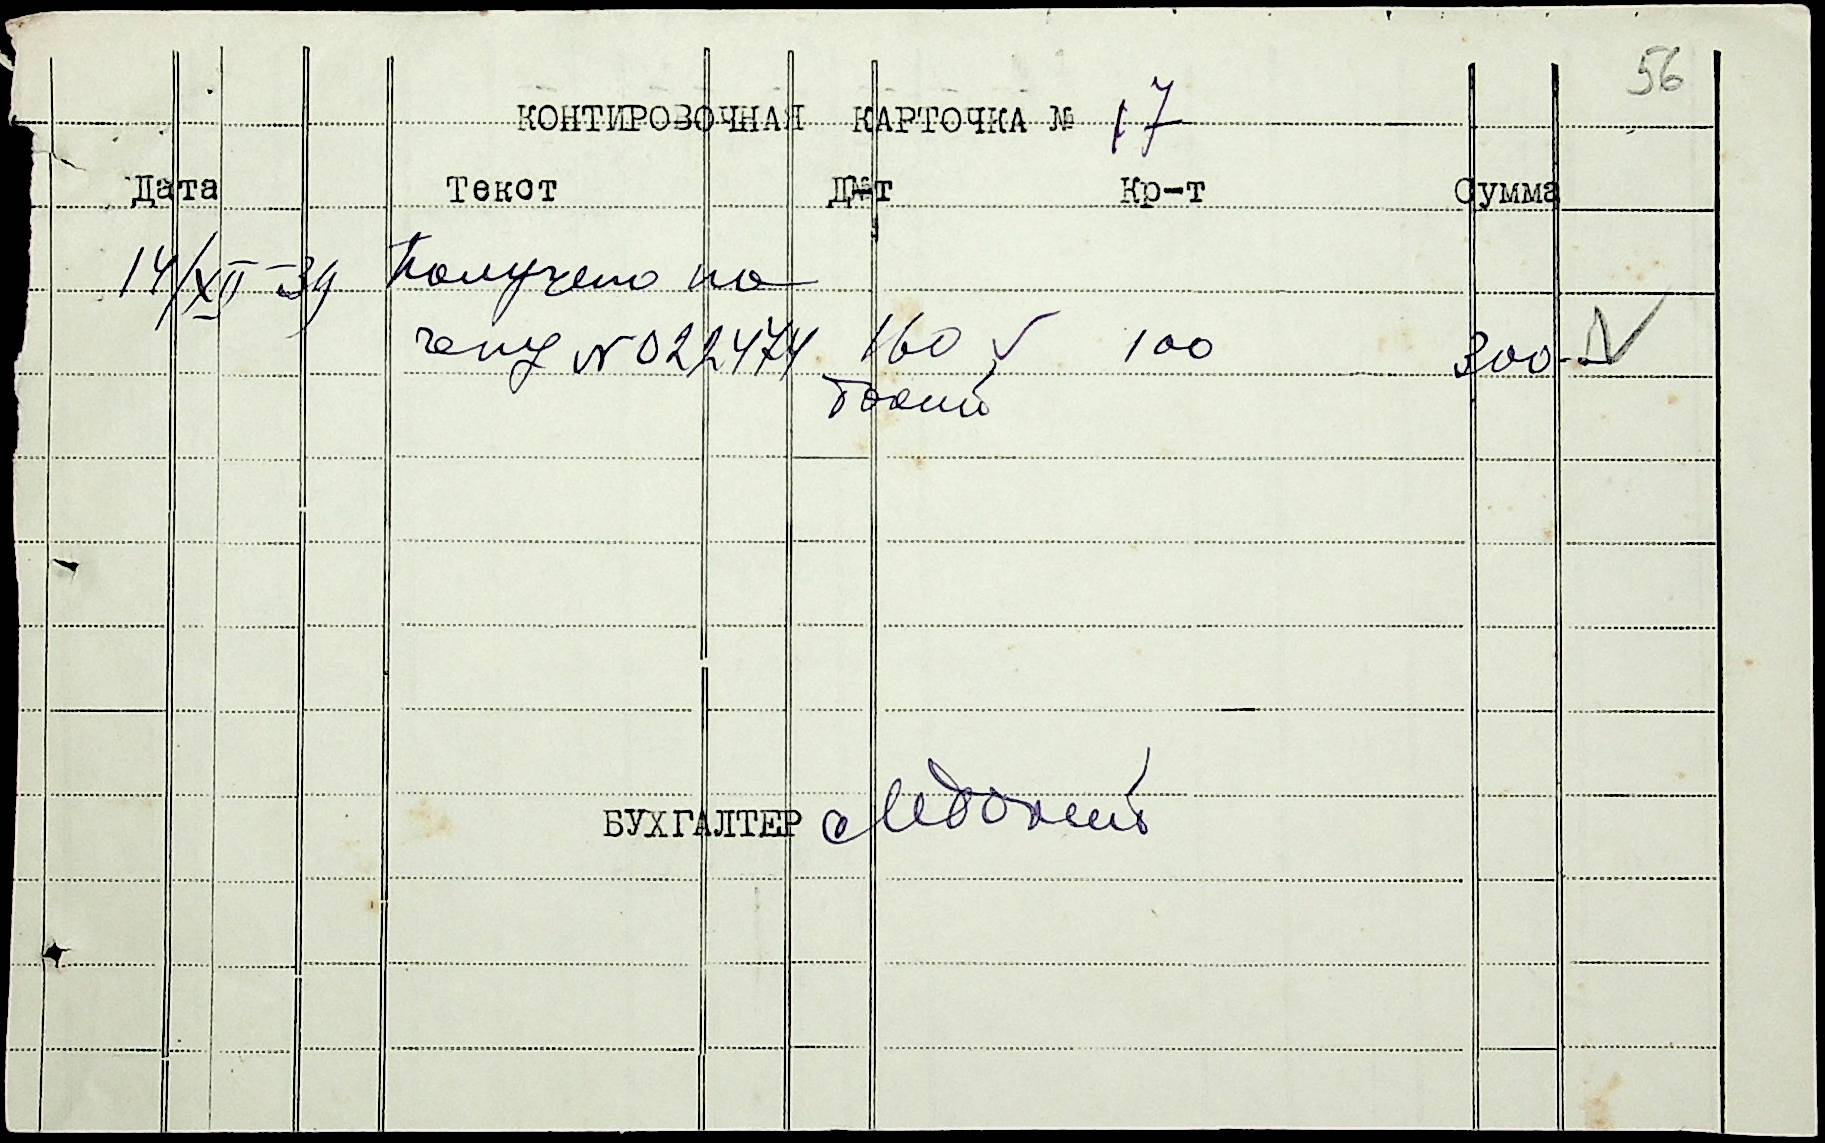 56
КОНТИРОВОЧНАЯ КАРТОЧКА № 17
Дата Текст Д-т Кр-т Сумма
14/XII-39 Получено по
чеку № 022474 160 100 300-
БУХГАЛТЕР